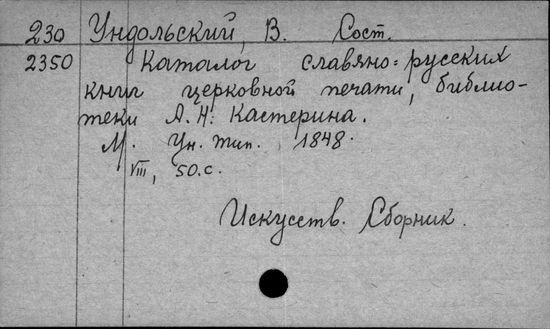 230 Ундольский, В. Сост.
2350 Каталог славяно=русских
книг церковной печати, библио-
теки А. Н. Кастерина.
М. Ун. тип. 1848.
VIII, 50.с.
Искусств. Сборник.